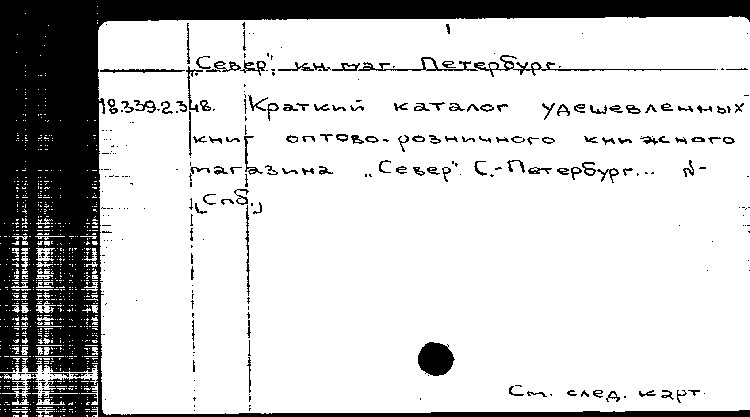 „Север", кн. маг. Петербург.
18.339.2.348. Краткий каталог удешевленных
книг оптово-розничного книжного
магазина „Север". С.-Петербург... №-
[Спб.]
См. след. карт.